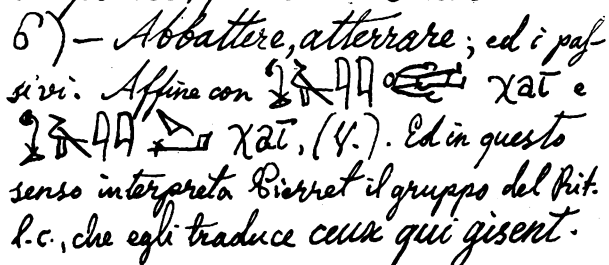 6) — Abbattere, atterrare; ed i pas-
sivi. Affine con χaī e
χaī, (V.). Ed in questo
senso interpreta Pierret il gruppo del Rit.
l.c., che egli traduce ceux qui gisent.